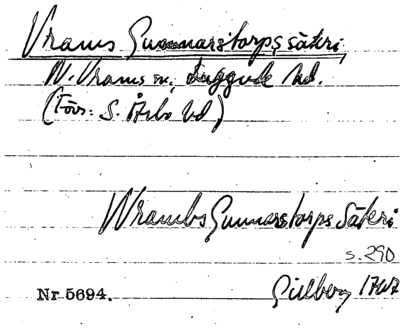 Vrams Gunnarstorps säteri,
N. Vrams sn, Luggude hd.
(Förr: S. Åsbo hd)
Wrambs Gunnarstorps Säteri
s. 290
Nr 5694. Gillberg 1767